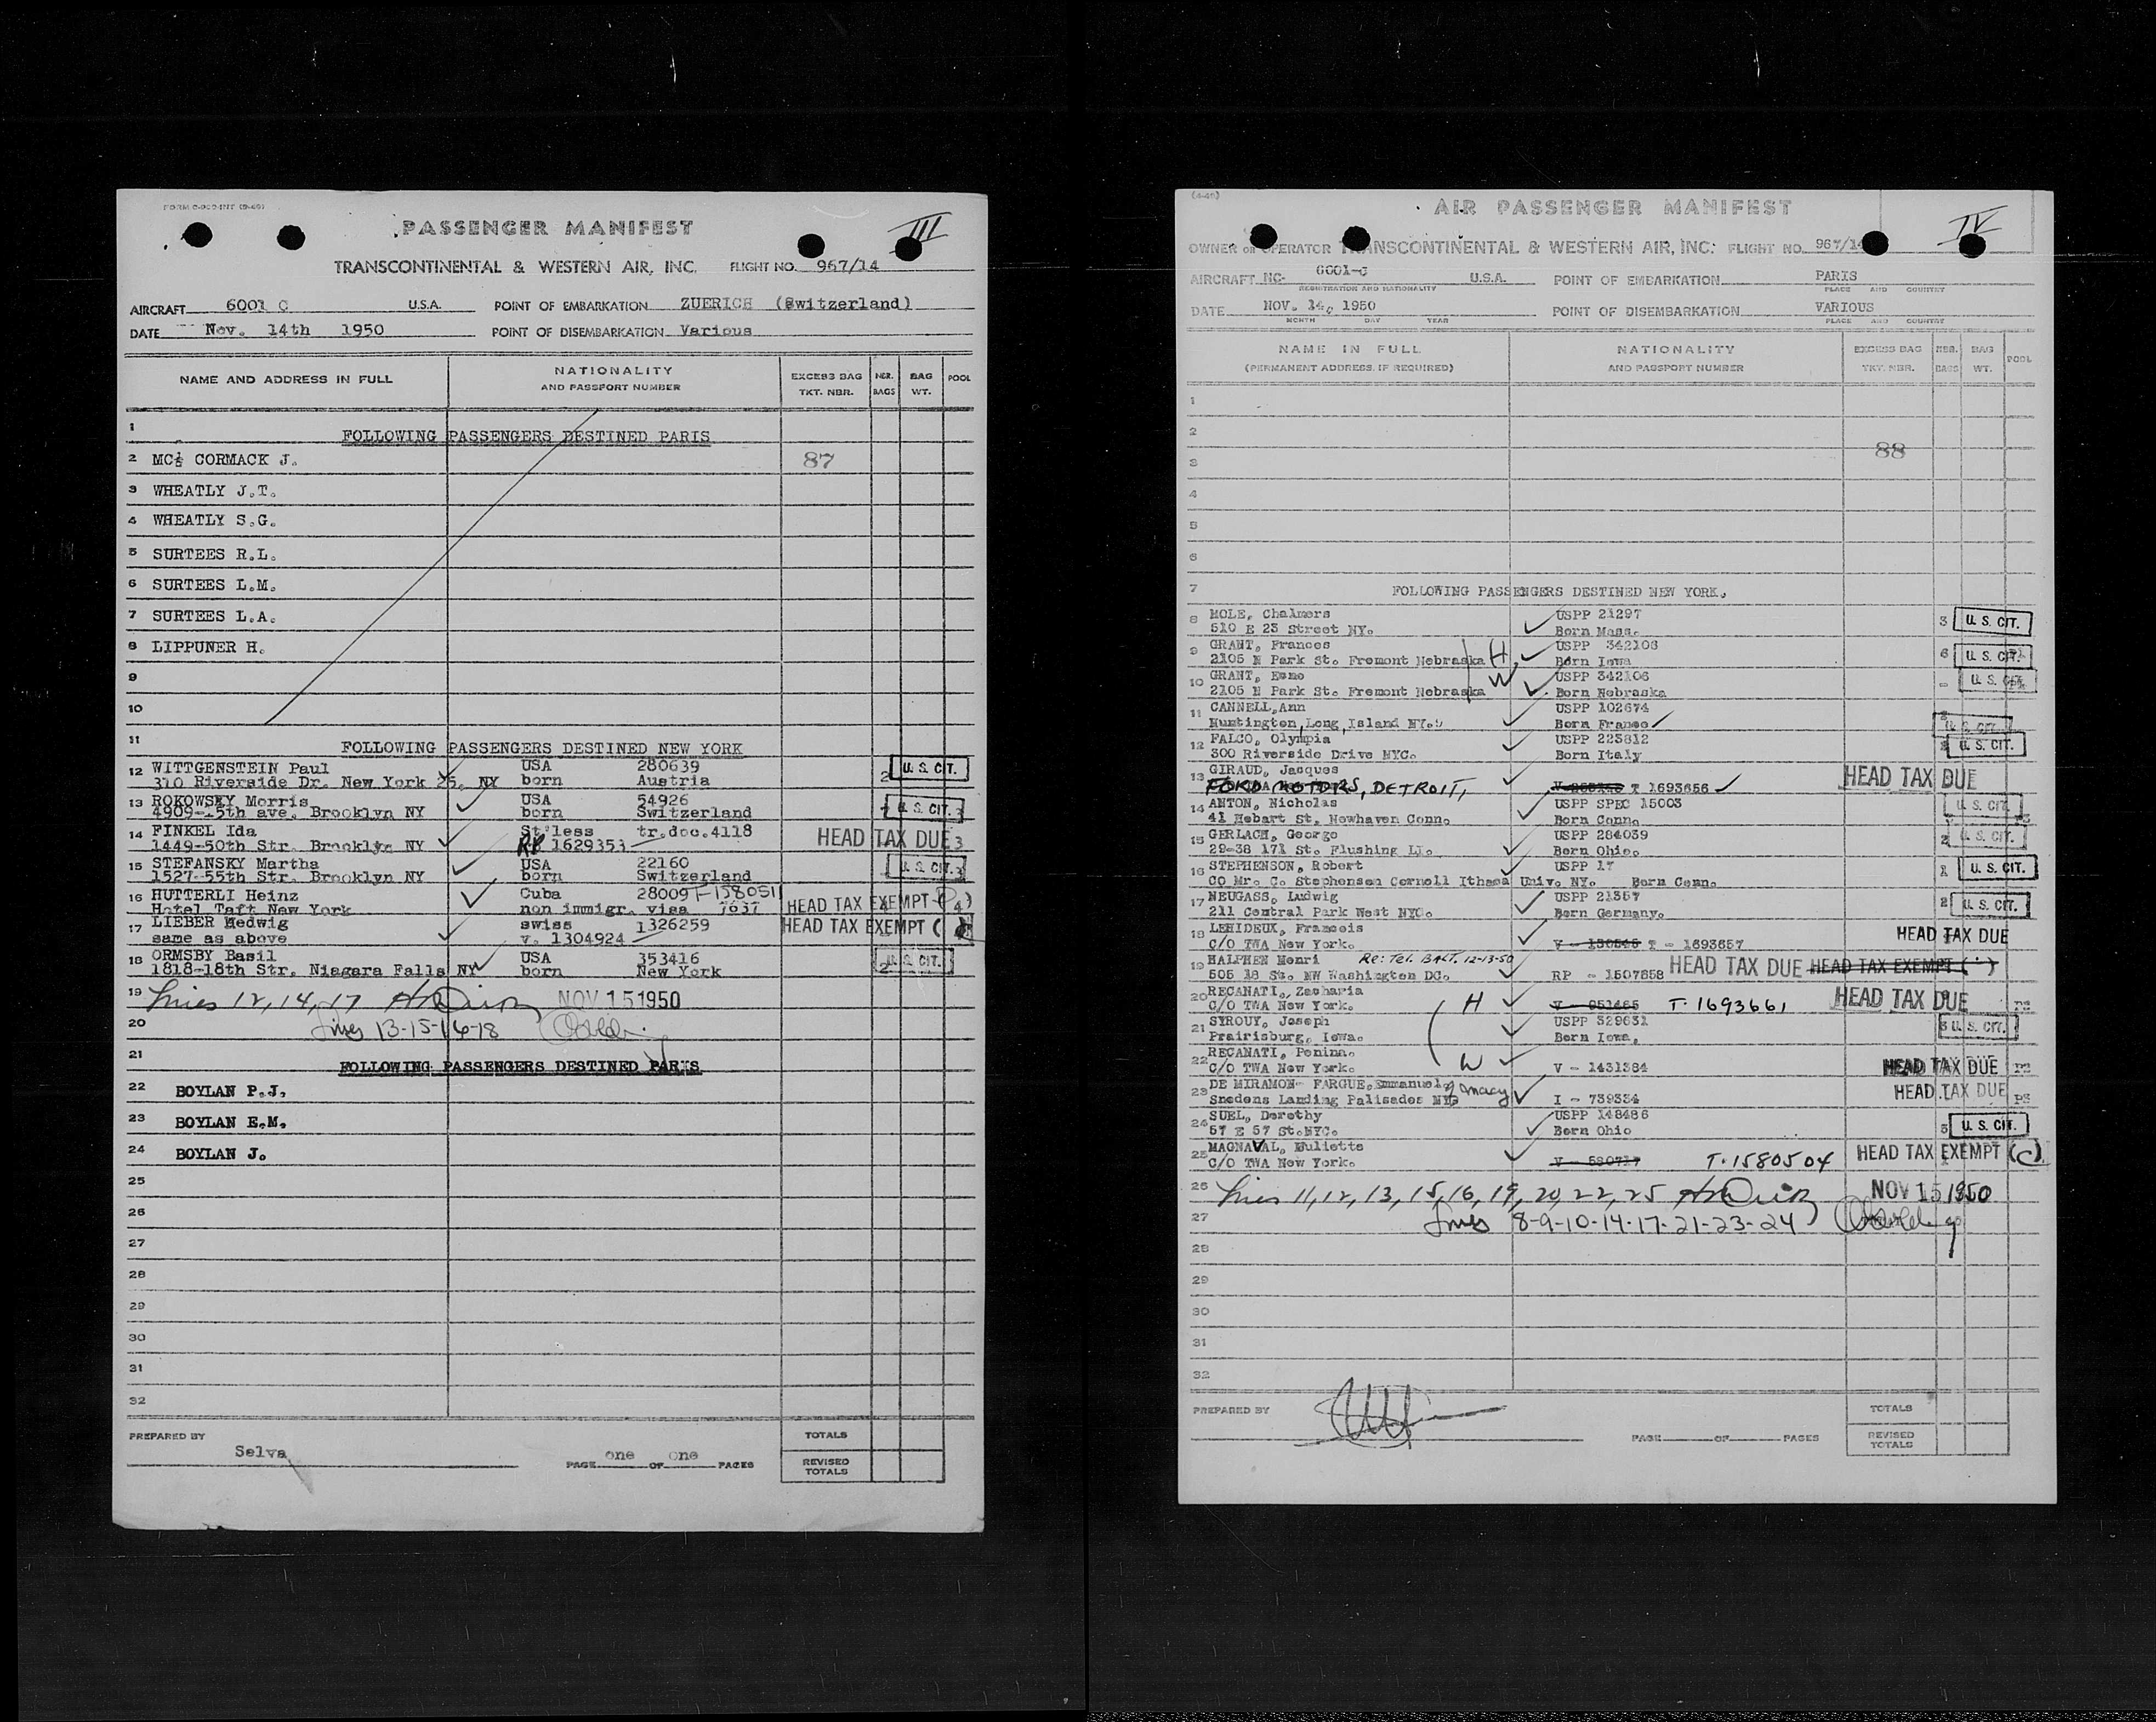 FORM O-909-INT (9-46)
PASSENGER MANIFEST
III
TRANSCONTINENTAL & WESTERN AIR, INC. FLIGHT NO. 967/14
AIRCRAFT 6001 C U.S.A. POINT OF EMBARKATION ZUERICH (Switzerland)
DATE Nov. 14th 1950 POINT OF DISEMBARKATION Various
NAME AND ADDRESS IN FULL
NATIONALITY AND PASSPORT NUMBER
EXCESS BAG TKT. NBR.
NBR. BAGS
BAG WT.
POOL
1
FOLLOWING PASSENGERS DESTINED PARIS
2 MC CORMACK J. 87
3 WHEATLY J.T.
4 WHEATLY S.G.
5 SURTEES R.L.
6 SURTEES L.M.
7 SURTEES L.A.
8 LIPPUNER H.
9
10
11
FOLLOWING PASSENGERS DESTINED NEW YORK
12 WITTGENSTEIN Paul USA 280639
310 Riverside Dr. New York 25, NY born Austria 2 U. S. CIT.
13 ROKOWSKY Morris USA 54926
4909-15th ave. Brooklyn NY born Switzerland U. S. CIT.
14 FINKEL Ida St'less tr.doc.4118
1449-50th Str. Brooklyn NY RP 1629353 HEAD TAX DUE 3
15 STEFANSKY Martha USA 22160
1527-55th Str. Brooklyn NY born Switzerland U. S. CIT.
16 HUTTERLI Heinz Cuba 28009 T-158051
Hotel Taft New York non immigr. visa 7637 HEAD TAX EXEMPT
17 LIEBER Hedwig swiss 1326259
same as above v. 1304924 HEAD TAX EXEMPT (
18 ORMSBY Basil USA 353416
1818-18th Str. Niagara Falls NY born New York 2 U. S. CIT.
19 Lines 12, 14, 17 NOV 15 1950
20 Lines 13-15-16-18
21
FOLLOWING PASSENGERS DESTINED PARIS
22 BOYLAN P.J.
23 BOYLAN E.M.
24 BOYLAN J.
25
26
27
28
29
30
31
32
PREPARED BY Selva PAGE one OF one PAGES
TOTALS
REVISED TOTALS
(4-46)
AIR PASSENGER MANIFEST
IV
OWNER OR OPERATOR TRANSCONTINENTAL & WESTERN AIR, INC. FLIGHT NO. 967/14
AIRCRAFT NC- 6001-C U.S.A. POINT OF EMBARKATION PARIS
REGISTRATION AND NATIONALITY PLACE AND COUNTRY
DATE NOV. 14, 1950 POINT OF DISEMBARKATION VARIOUS
MONTH DAY YEAR PLACE AND COUNTRY
NAME IN FULL
(PERMANENT ADDRESS, IF REQUIRED)
NATIONALITY
AND PASSPORT NUMBER
EXCESS BAG TKT. NBR.
NBR. BAGS
BAG WT.
POOL
1
2
3 88
4
5
6
7 FOLLOWING PASSENGERS DESTINED NEW YORK.
8 MOLE, Chalmers USPP 21297
510 E 23 Street NY. Born Mass. 3 U. S. CIT.
9 GRANT, Frances USPP 342108
2105 N Park St. Fremont Nebraska H Born Iowa 6 U. S. CIT.
10 GRANT, Esmo USPP 342106
2105 N Park St. Fremont Nebraska W Born Nebraska - U. S. CIT.
11 CANNELL, Ann USPP 102674
Huntington, Long Island NY. Born France U. S. CIT.
12 FALCO, Olympia USPP 223812
300 Riverside Drive NYC. Born Italy U. S. CIT.
13 GIRAUD, Jacques
FORD MOTORS, DETROIT, T 1693656 HEAD TAX DUE
14 ANTON, Nicholas USPP SPEC 15003
41 Hobart St. Newhaven Conn. Born Conn. U. S. CIT.
15 GERLACH, George USPP 284039
29-38 171 St. Flushing LI. Born Ohio. 2 U. S. CIT.
16 STEPHENSON, Robert USPP 17
CO Mr. C. Stephenson Cornell Ithaca Univ. NY. Born Conn. 1 U. S. CIT.
17 NEUGASS, Ludwig USPP 21357
211 Central Park West NYC. Born Germany. 2 U. S. CIT.
18 LEHIDEUX, Francois
C/O TWA New York. V - 130545 T - 1693657 HEAD TAX DUE
19 HALPHEN Henri Re: Tel. BALT. 12-13-50
505 18 St. NW Washington DC. RP - 1507858 HEAD TAX DUE HEAD TAX EXEMPT
20 RECANATI, Zacharia
C/O TWA New York. H V - 951485 T-1693661 HEAD TAX DUE
21 SYROUY, Joseph USPP 329631
Prairisburg, Iowa. Born Iowa. 3 U. S. CIT.
22 RECANATI, Penina.
C/O TWA New York. W V - 1431384 HEAD TAX DUE
23 DE MIRAMON- FARGUE, Emmanuel
Snedens Landing Palisades NY. I - 739334 HEAD TAX DUE
24 SUEL, Dorothy USPP 148486
57 E 57 St. NYC. Born Ohio 5 U. S. CIT.
25 MAGNAVAL, Juliette
C/O TWA New York. T-1580504 HEAD TAX EXEMPT (C)
26 Lines 11, 12, 13, 15, 16, 19, 20, 22, 25 NOV 15 1950
27 Lines 8-9-10-14-17-21-23-24
28
29
30
31
32
PREPARED BY PAGE OF PAGES
TOTALS
REVISED TOTALS